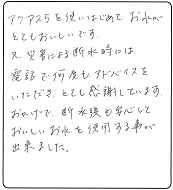 アクアス5を使いはじめて お水が
とてもおいしいです。
又、災害による断水時には、
電話で何度もアドバイスを
いただき とても感謝しています。
おかげで、断水後も安心して
おいしいお水を使用する事が
出来ました。